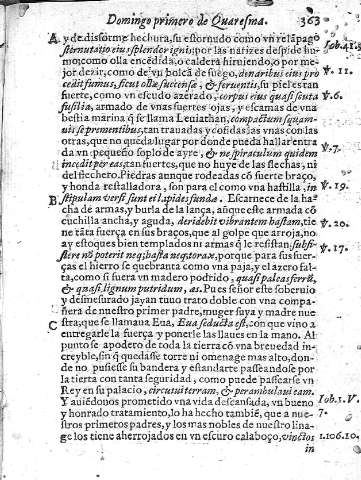 Domingo primero de Quaresma. 363
A y de disforme hechura, su estornudo como vn relãpago
sternutatio eius splendor ignis: por las narizes despide hu-
mo; como olla encẽdida, o caldera hirviendo, o por me-
jor dezir, como de vn bolcã de fuego, de naribus eius pro
cedit fumus, sicut ollæ succensæ, & feruentis, su piel es tan
fuerte, como vn escudo azerado, corpus eius quasi scuta
fusilia, armado de vnas fuertes ojas, y escamas de vna
bestia marina q̃ se llama Leuiathan, compactum squam-
mis se prementibus, tan trauadas y cosidas las vnas con las
otras, que no queda lugar por donde pueda hallar entra
da vn pequeño soplo de ayre, & ne spiraculum quidem
incedit per eas, tan fuertes, que no huye de las flechas, ni
del flechero. Piedras aunque rodeadas cõ fuerte braço,
y honda restalladora, son para el como vna hastilla, in
B stipulam versi sunt ei lapides fundæ. Escarnece de la ha-
cha de armas, y burla de la lança, aũque este armada cõ
cuchilla ancha, y aguda, deridebit vibrantem hastam, tie
ne tãta fuerça en sus braços, que al golpe que arroja, no
ay estoques bien templados ni armas q̃ le resistan, subsi-
stere nõ poterit neq; hasta neq; torax, porque para sus fuer-
ças el hierro se quebranta como vna paja, y el azero fal-
ta, como si fuera vn madero podrido, quasi paleas ferrũ,
& quasi lignum putridum, æs. Pues señor este soberuio
y desmesurado jayan tuuo trato doble con vna compa-
ñera de nuestro primer padre, muger suya y madre nue
C stra, que se llamaua Eua, Eua seducta est, con que vino a
entregarle la fuerça y ponerle las llaues en la mano. Al
punto se apodero de toda la tierra cõ vna breuedad in-
creyble, sin q̃ quedasse torre ni omenage mas alto, don-
de no pusiesse su bandera y estandarte passeandose por
la tierra con tanta seguridad, como puede passearse vn
Rey en su palacio, circuiui terram, & perambulaui eam.
Y auiẽdonos prometido vna vida descansada, vn bueno
y honrado tratamiento, lo ha hecho tambiẽ, que a nue-
stros primeros padres, y los mas nobles de nuestro lina-
ge los tiene aherrojados en vn escuro calaboço, vinctos
in
Iob. 41.
V. 11.
V. 6.
V. 7.
V. 19.
V. 20.
V. 17.
Iob. 1. V.
7.
106. 10.